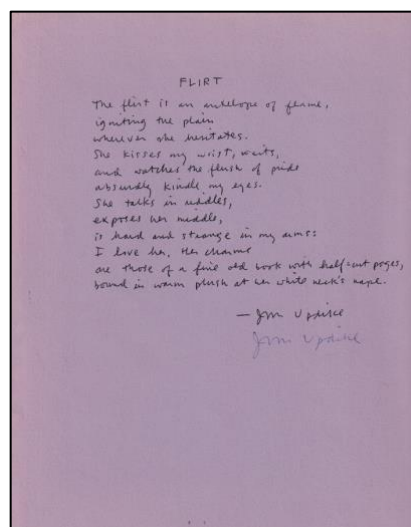 FLIRT
The flirt is an antelope of flame,
igniting the plain
wherever she hesitates.
She kisses my wrist, waits,
and watches the flush of pride
absurdly kindle my eyes.
She talks in riddles,
exposes her middle,
is hard and strange in my arms:
I love her. Her charms
are those of a fine old book with half-cut pages,
bound in warm plush at her white neck's nape.
— John Updike
John Updike